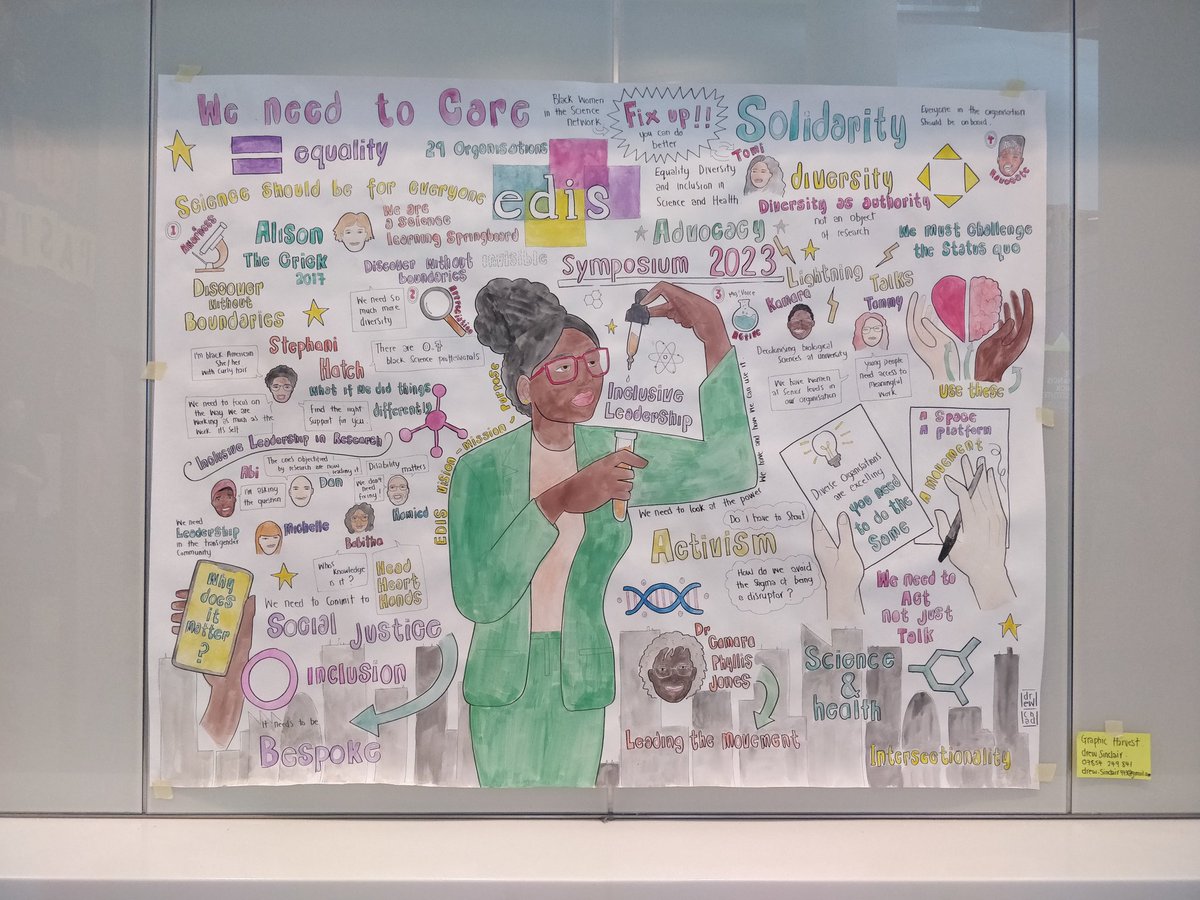 We need to Care
Black Women
in the Science
Network
Fix up!!
you can do
better
Solidarity
Everyone in the organisation
Should be onboard.
equality
29 Organisations
edis
Equality Diversity
and Inclusion in
Science and Health
Tomi
diversity
Diversity as authority
not an object
of research
Science Should be for everyone
1
Alison
The Crick
2017
We are
a Science
Learning Springboard
Discover Without
boundaries
Invisible
Advocacy
We must challenge
the Status quo
Symposium 2023
Lightning
Talks
Discover
Without
Boundaries
We need so
much more
diversity
2
3
Kamara
Tammy
Decolonising biological
Sciences at university
We have women
at Senior levels in
our organisation
Young people
need access to
meaningful
work
use these
I'm black American
She/her
with Curly hair
Stephani
Hatch
There are 0.8
black Science professionals
What if we did things
differently
We need to focus on
the way we are
working as much as the
work it's self
Find the right
Support for you
Inclusive Leadership in Research
EDIS Vision - Mission - Purpose
Inclusive
Leadership
We need to look at the power we have and how we can use it
A Space
A platform
A movement
Diverse Organisations
are excelling
you need
to do the
Same
Abi
I'm asking
the question
Dan
Disability
matters
We don't
need
fixing!
Hamied
We need
Leadership
in the transgender
Community
Michelle
Babitha
Whos
Knowledge
is it?
Head
Heart
Hands
Do I have to Shout
Activism
How do we avoid
the Stigma of being
a disruptor?
We need to
Act
not just
Talk
Why
does
it
matter
?
We need to Commit to
Social Justice
inclusion
It needs to be
Bespoke
Dr
Camara
Phyllis
Jones
Leading the Movement
Science
&
health
Intersectionality
Graphic Harvest
drew Sinclair